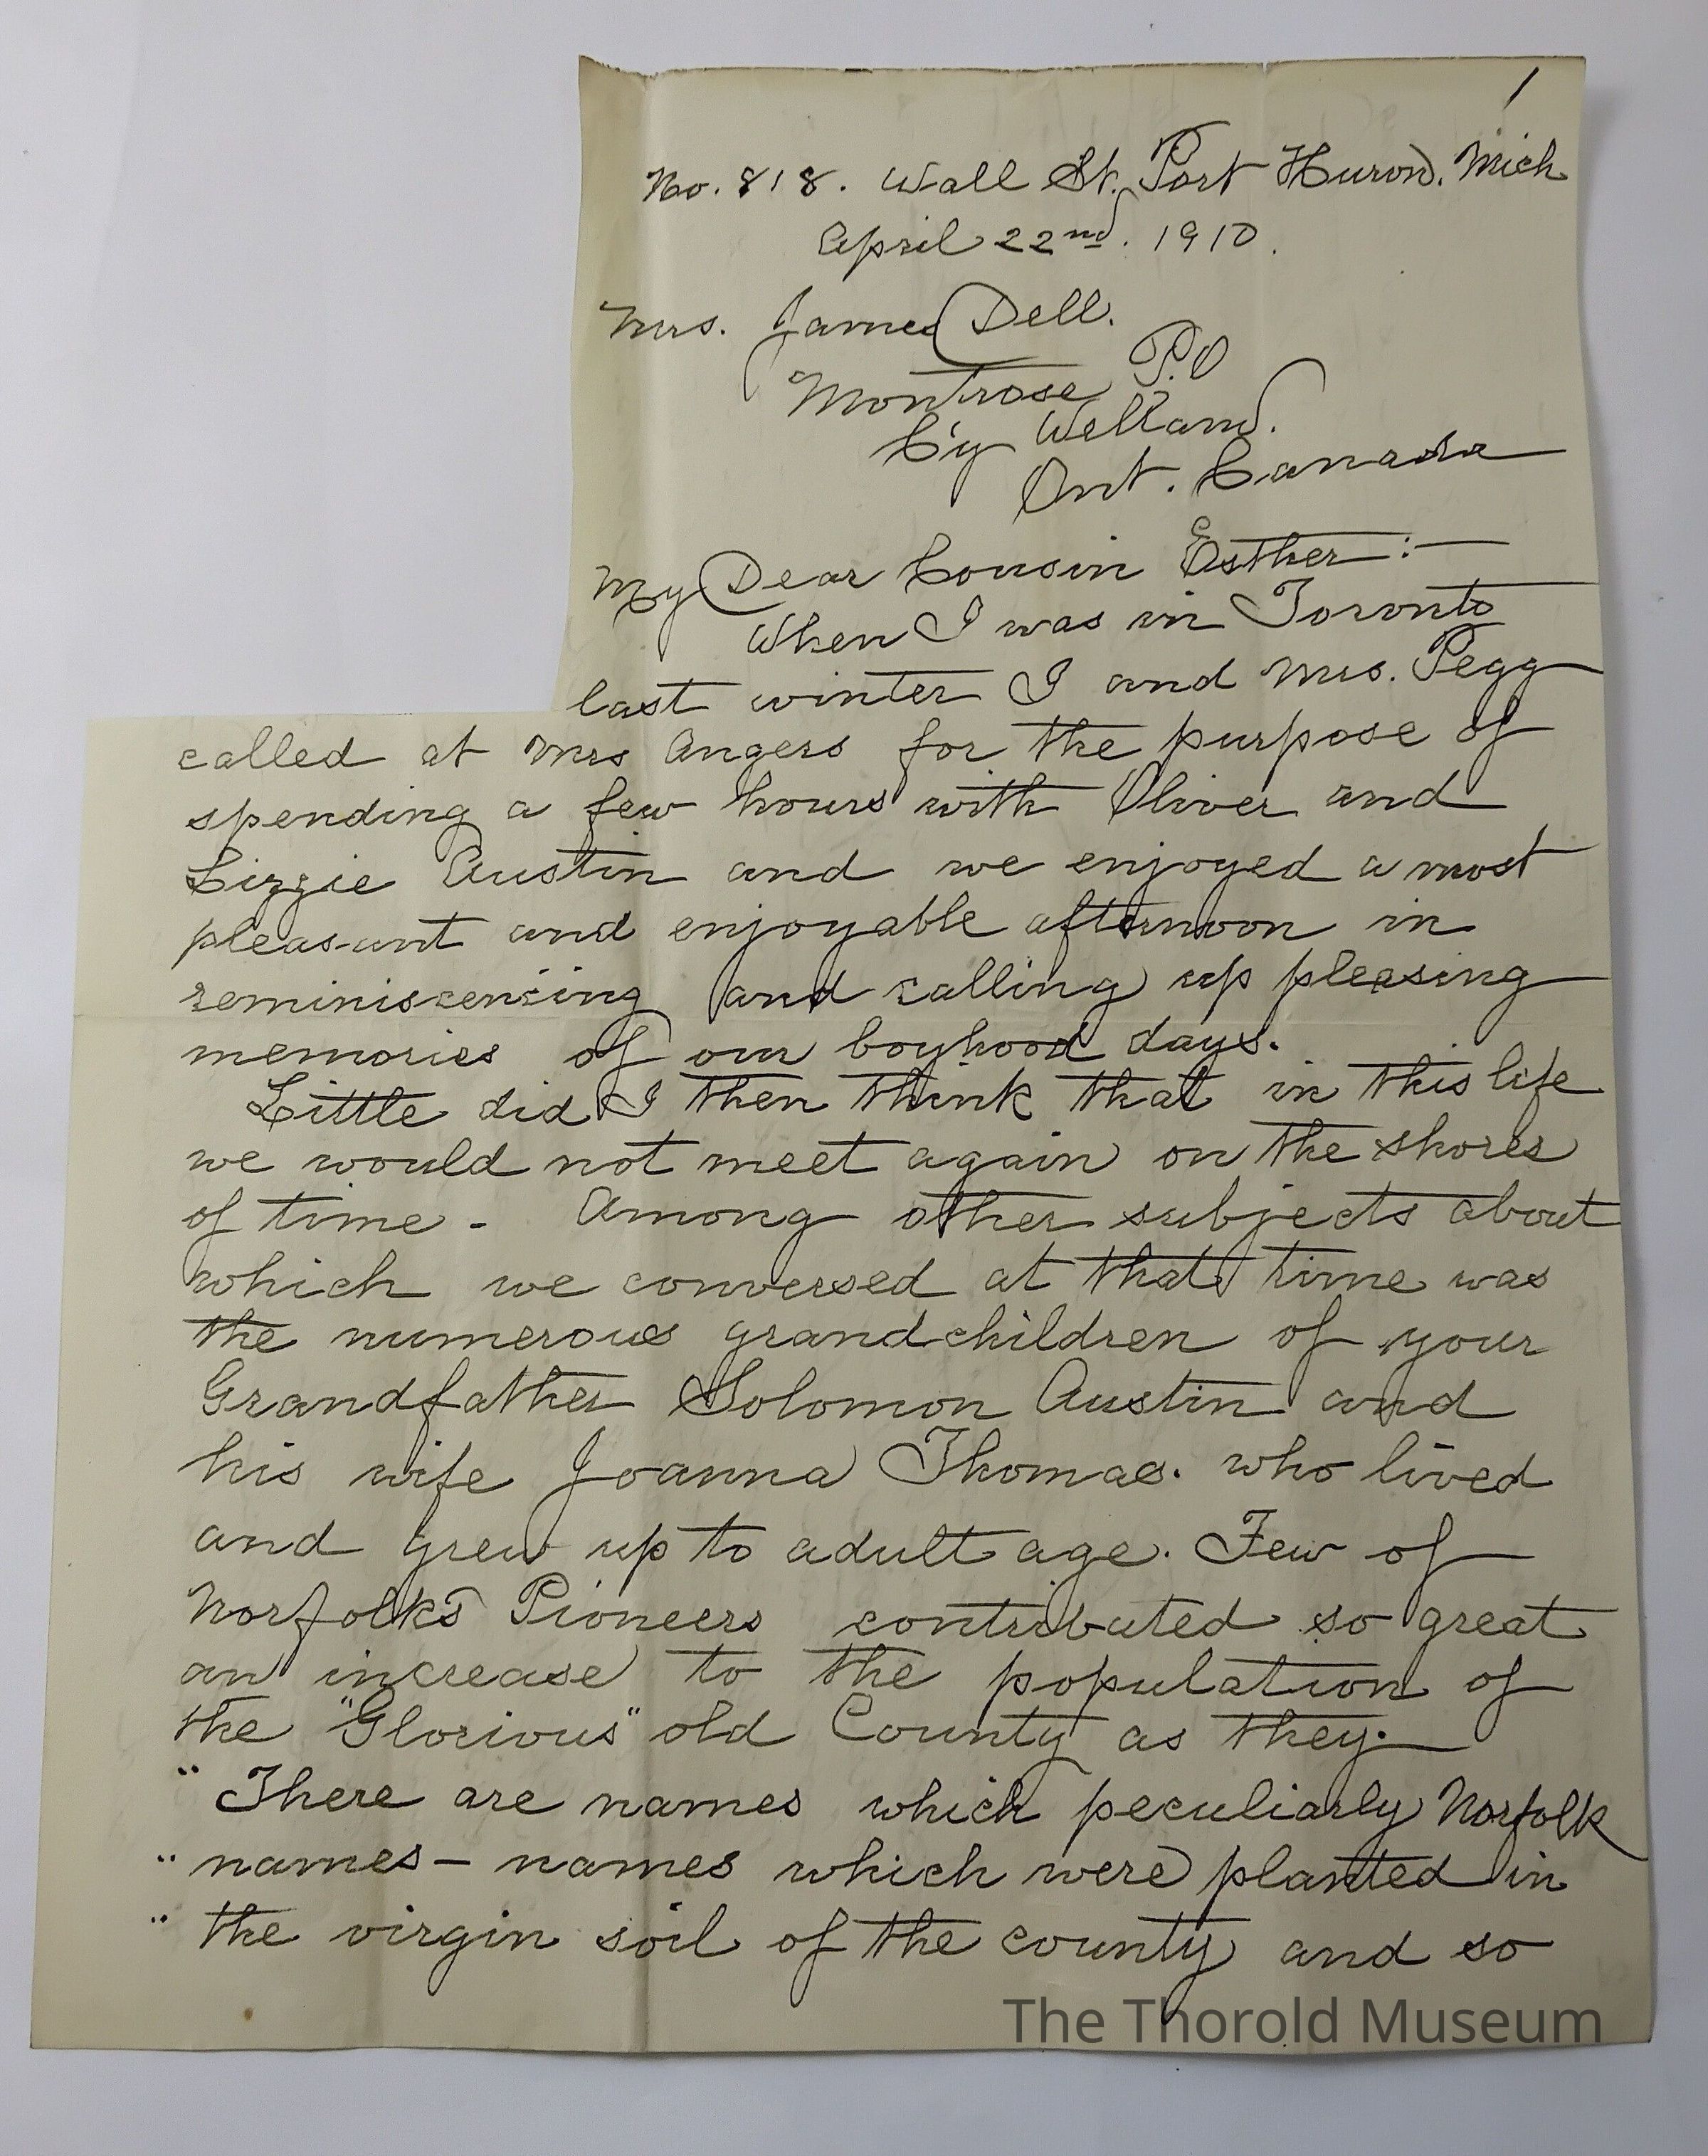 1
No. 818. Wall St. Port Huron. Mich
April 22nd. 1910.
Mrs. James Dell.
Montrose P.O
C'y Welland.
Ont. Canada
My Dear Cousin Esther:—
When I was in Toronto
last winter I and Mrs. Pegg
called at Mrs Angers for the purpose of
spending a few hours with Oliver and
Lizzie Austin and we enjoyed a most
pleasant and enjoyable afternoon in
reminiscencing and calling up pleasing
memories of our boyhood days.
Little did I then think that in this life
we would not meet again on the shores
of time - Among other subjects about
which we conversed at that time was
the numerous grandchildren of your
Grandfather Solomon Austin and
his wife Joanna Thomas. who lived
and grew up to adult age. Few of
Norfolk's Pioneers contributed so great
an increase to the population of
the "Glorious" old County as they.
" There are names which peculiarly Norfolk
" names - names which were planted in
" the virgin soil of the county and so
The Thorold Museum